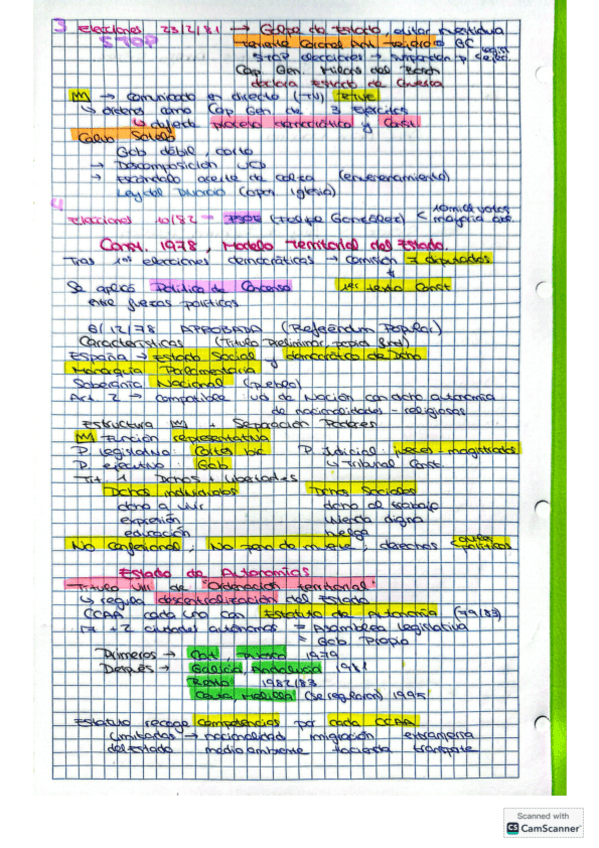 3 elecciones 23/2/81 → Golpe de Estado, evitar investidura
STOP Teniente Coronel Ant. Tejero GC
STOP elecciones → suspensión p. legisl. ejec.
Cap. Gen. Milans del Bosch
declara Estado de Guerra
M → comunicado en directo (TV) TEVE
↳ órdenes como Cap Gen de 3 ejércitos
↳ objete proceso democrático y Const.
Calvo Sotelo
Gob débil, corto
→ Descomposición UCD
→ Escándalo aceite de colza (envenenamiento)
Ley del Divorcio (opon Iglesia)
4
Elecciones 10/82 = PSOE (Felipe González) < 10 mill votos mayoría abs.
Const. 1978, Modelo Territorial del Estado.
Tras 1as elecciones democráticas → comisión 7 diputados
↓
Se aplicó Política de Consenso 1er texto Const
entre fuerzas políticas
6/12/78 APROBADA (Referéndum Popular)
Características (Título Preliminar,
España → Estado Social y democrático de Dcho
Monarquía Parlamentaria
Soberanía Nacional (pueblo)
Art. 2 → compatible ud de Nación con dcho autonomía
de nacionalidades - religiosas
Estructura M + Separación Poderes
M Función representativa
P legislativo: Cortes bic P Judicial: jueces - magistrados
P ejecutivo: Gob ↳ Tribunal Const.
Tit. 1 Dchos + Libertades
Dchos individuales Dchos Sociales
dcho a vivir dcho al trabajo
expresión vivienda digna
educación huelga
No confesional, No pena de muerte, derechos políticos
Estado de Autonomías
Título VIII de "Ordenación territorial"
↳ regula descentralización del Estado
CCAA cada una con Estatuto de Autonomía (79/83)
17 + 2 ciudades autónomas = Asamblea legislativa
= Gob Propio
Primeros → Cat, P. Vasco 1979
Después → Galicia, Andalucía 1981
Resto 1982/83
Ceuta, Melilla (se regularon) 1995
Estatuto recoge competencias por cada CCAA
Limitadas → nacionalidad inmigración extranjería
del Estado medio ambiente Hacienda transporte
Scanned with
CS CamScanner